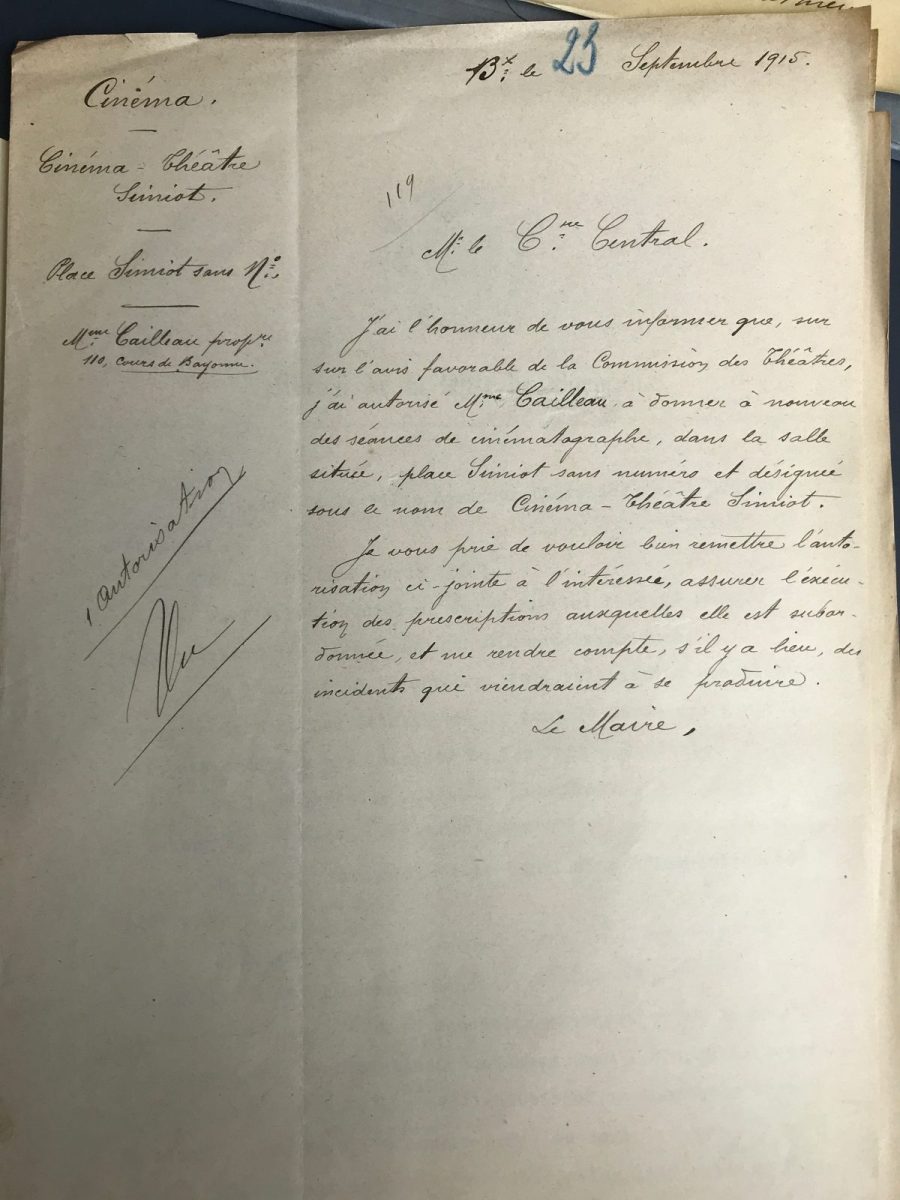 Bx le 23 Septembre 1915.
Cinéma.
Cinéma-Théâtre
Simiot.
Place Simiot sans No.
Mme Cailleau propre
110, Cours de Bayonne.
1 Autorisation
119
Mr le Cre Central.
J'ai l'honneur de vous informer que, sur
sur l'avis favorable de la Commission des Théâtres,
j'ai autorisé Mme Cailleau à donner à nouveau
des séances de cinématographe, dans la salle
située, place Simiot sans numéro et désignée
sous le nom de Cinéma-Théâtre Simiot.
Je vous prie de vouloir bien remettre l'auto-
risation ci-jointe à l'intéressée, assurer l'éxécu-
tion des prescriptions auxquelles elle est subor-
donnée, et me rendre compte, s'il y a lieu, des
incidents qui viendraient à se produire.
Le Maire,